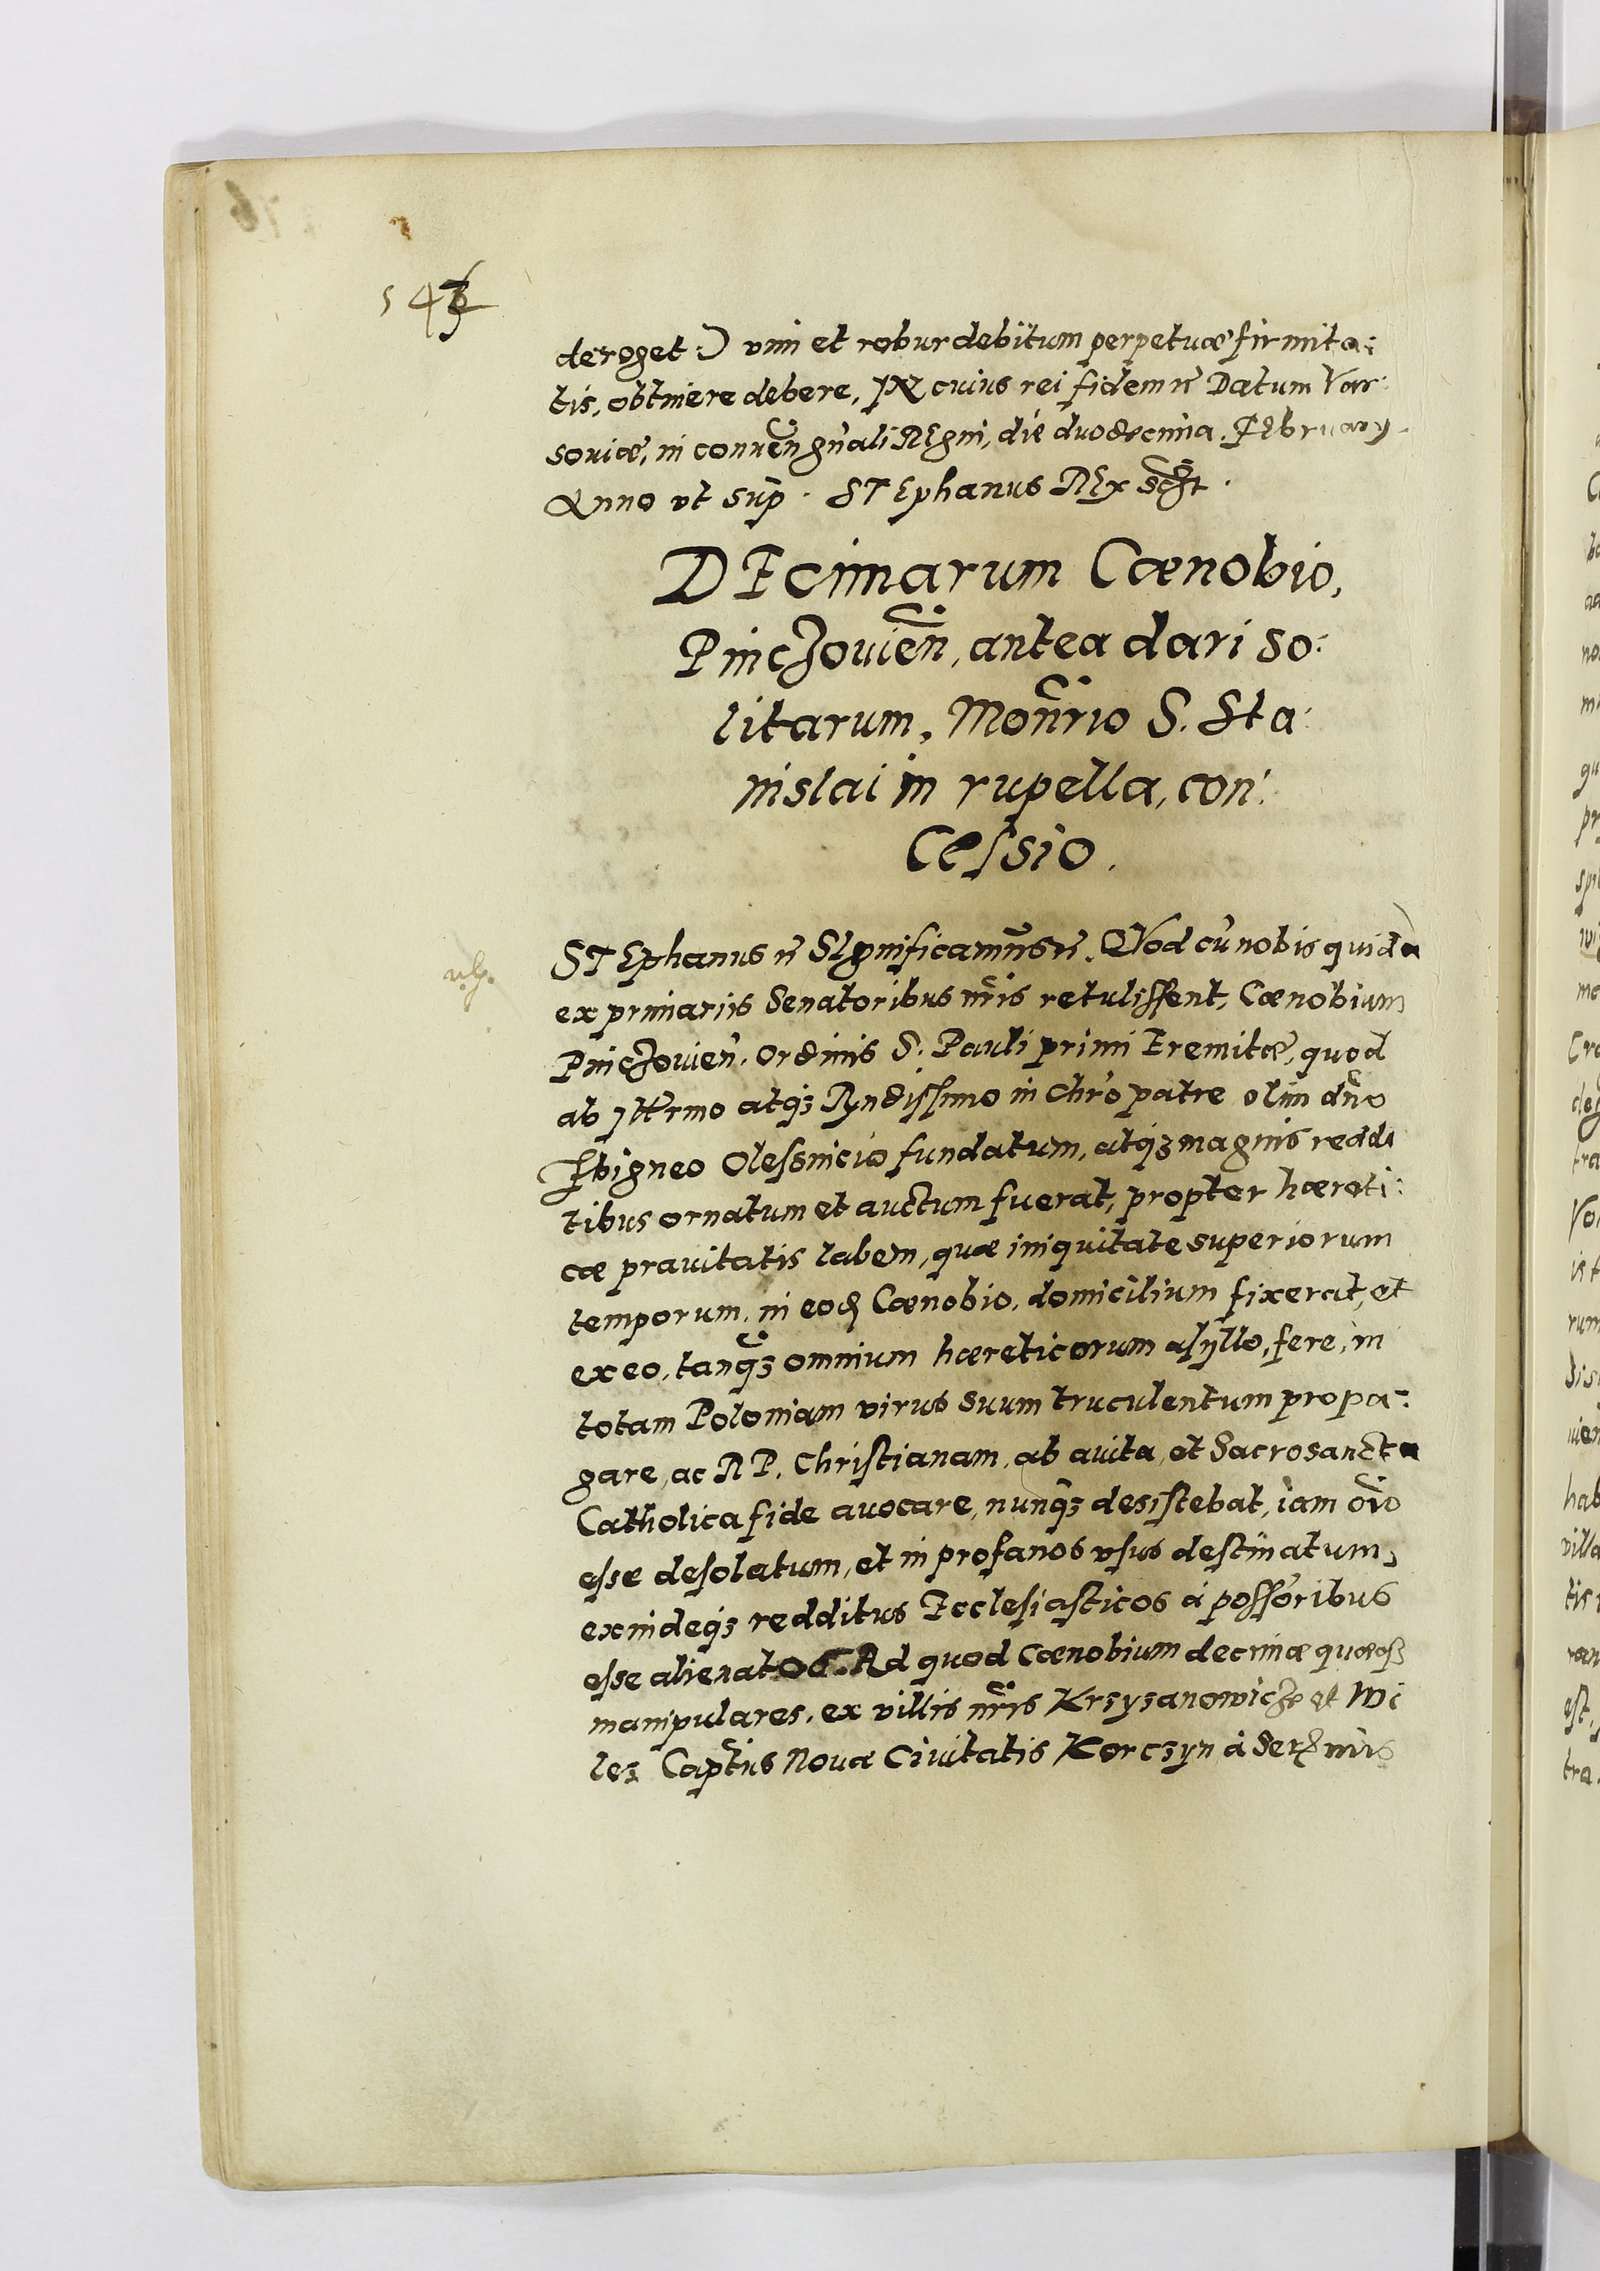 deroget:) vim et robur debitum perpetuæ firmita:
tis, obtinere debere, IN cuius rei fidem etc Datum Var:
soviæ, in conuen̄ gn̄ali REgni, die duodecima. FEbruary
Anno vt sup̄. STEphanus REx sc̄pt.
DEcimarum Cœnobio,
Pinczouien̄, antea dari so:
litarum, Monr̄io S. Sta:
nislai in rupella, con:
Cessio.
STEphanus etc SIgnificamus etc. QVod cū nobis quida
ex primariis Senatoribus nr̄is retulissent, Cœnobium
Pinczouien̄. Ordinis S. Pauli primi Eremitæ, quod
ab Illr̄mo atq3 Rn̄dissimo in Chr̄o patre olim dn̄o
Sbigneo Olessnicio fundatum, atq3 magnis reddi
tibus ornatum et auctum fuerat, propter hæreti:
cæ prauitatis labem, quæ iniquitate superiorum
temporum, in eod Cœnobio, domicilium fixerat, et
ex eo, tanq3 omnium hæreticorum asyllo, fere, in
totam Poloniam virus suum truculentum propa:
gare, ac RP. Christianam, ab avita, et Sacrosancta
Catholica fide avocare, nunq3 desistebat, iam om̄o
esse desolatum, et in profanos vsus destinatum,
exindeq3 redditus Ecclesiasticos á possoribus
esse alienatos. Ad quod Cœnobium decimæ quæq3
manipulares, ex villis nr̄is Krzyzanowicze et Wi
lez Captūs Nouæ Ciuitatis Korczyn á Ser: nr̄is